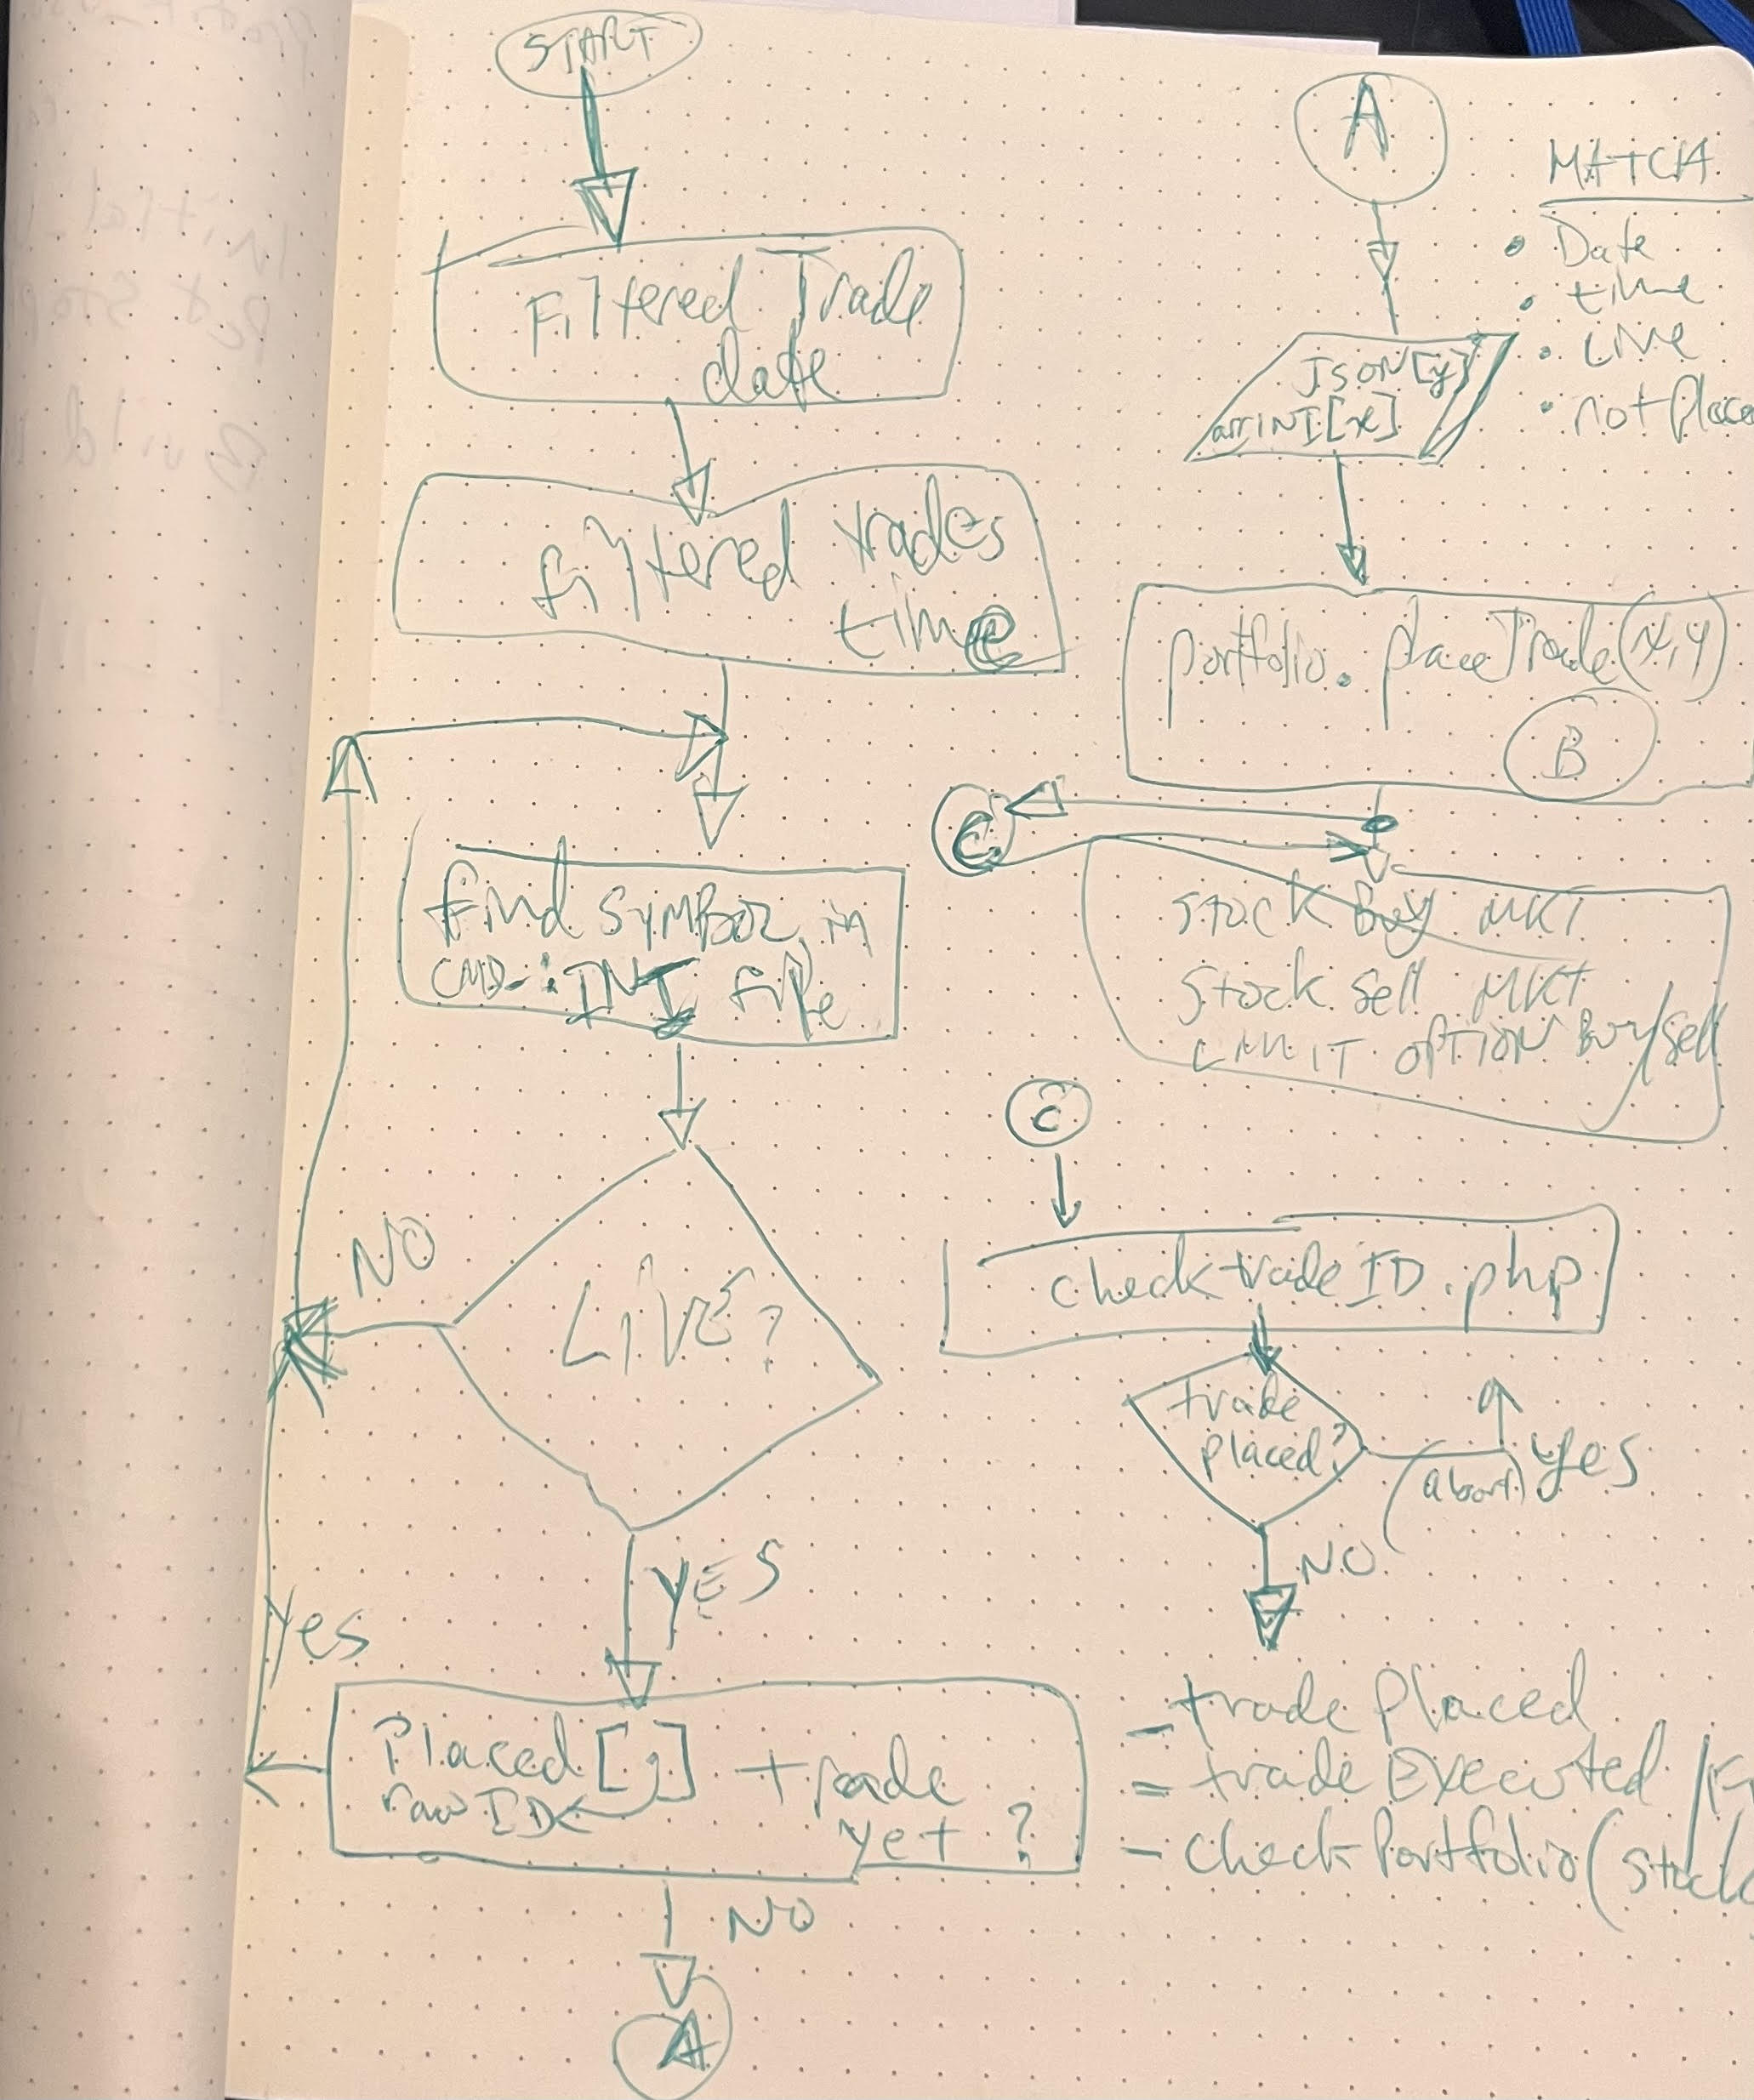 START
Filtered Trade
date
filtered trades
time
find symbol in
CMD-: INI file
LIVE?
NO
YES
Yes
Placed [ ] trade
raw ID
yet ?
NO
A
A
MATCH
• Date
• time
• LIVE
• not Place
JSON[y]
arrINI[x]
portfolio.placeTrade(x,y)
B
C
Stock Buy MKT
Stock Sell MKT
LIMIT OPTION Buy/Sell
C
checktradeID.php
trade
placed?
(abort) Yes
NO
- trade Placed
= trade Executed
- Check Portfolio (stock